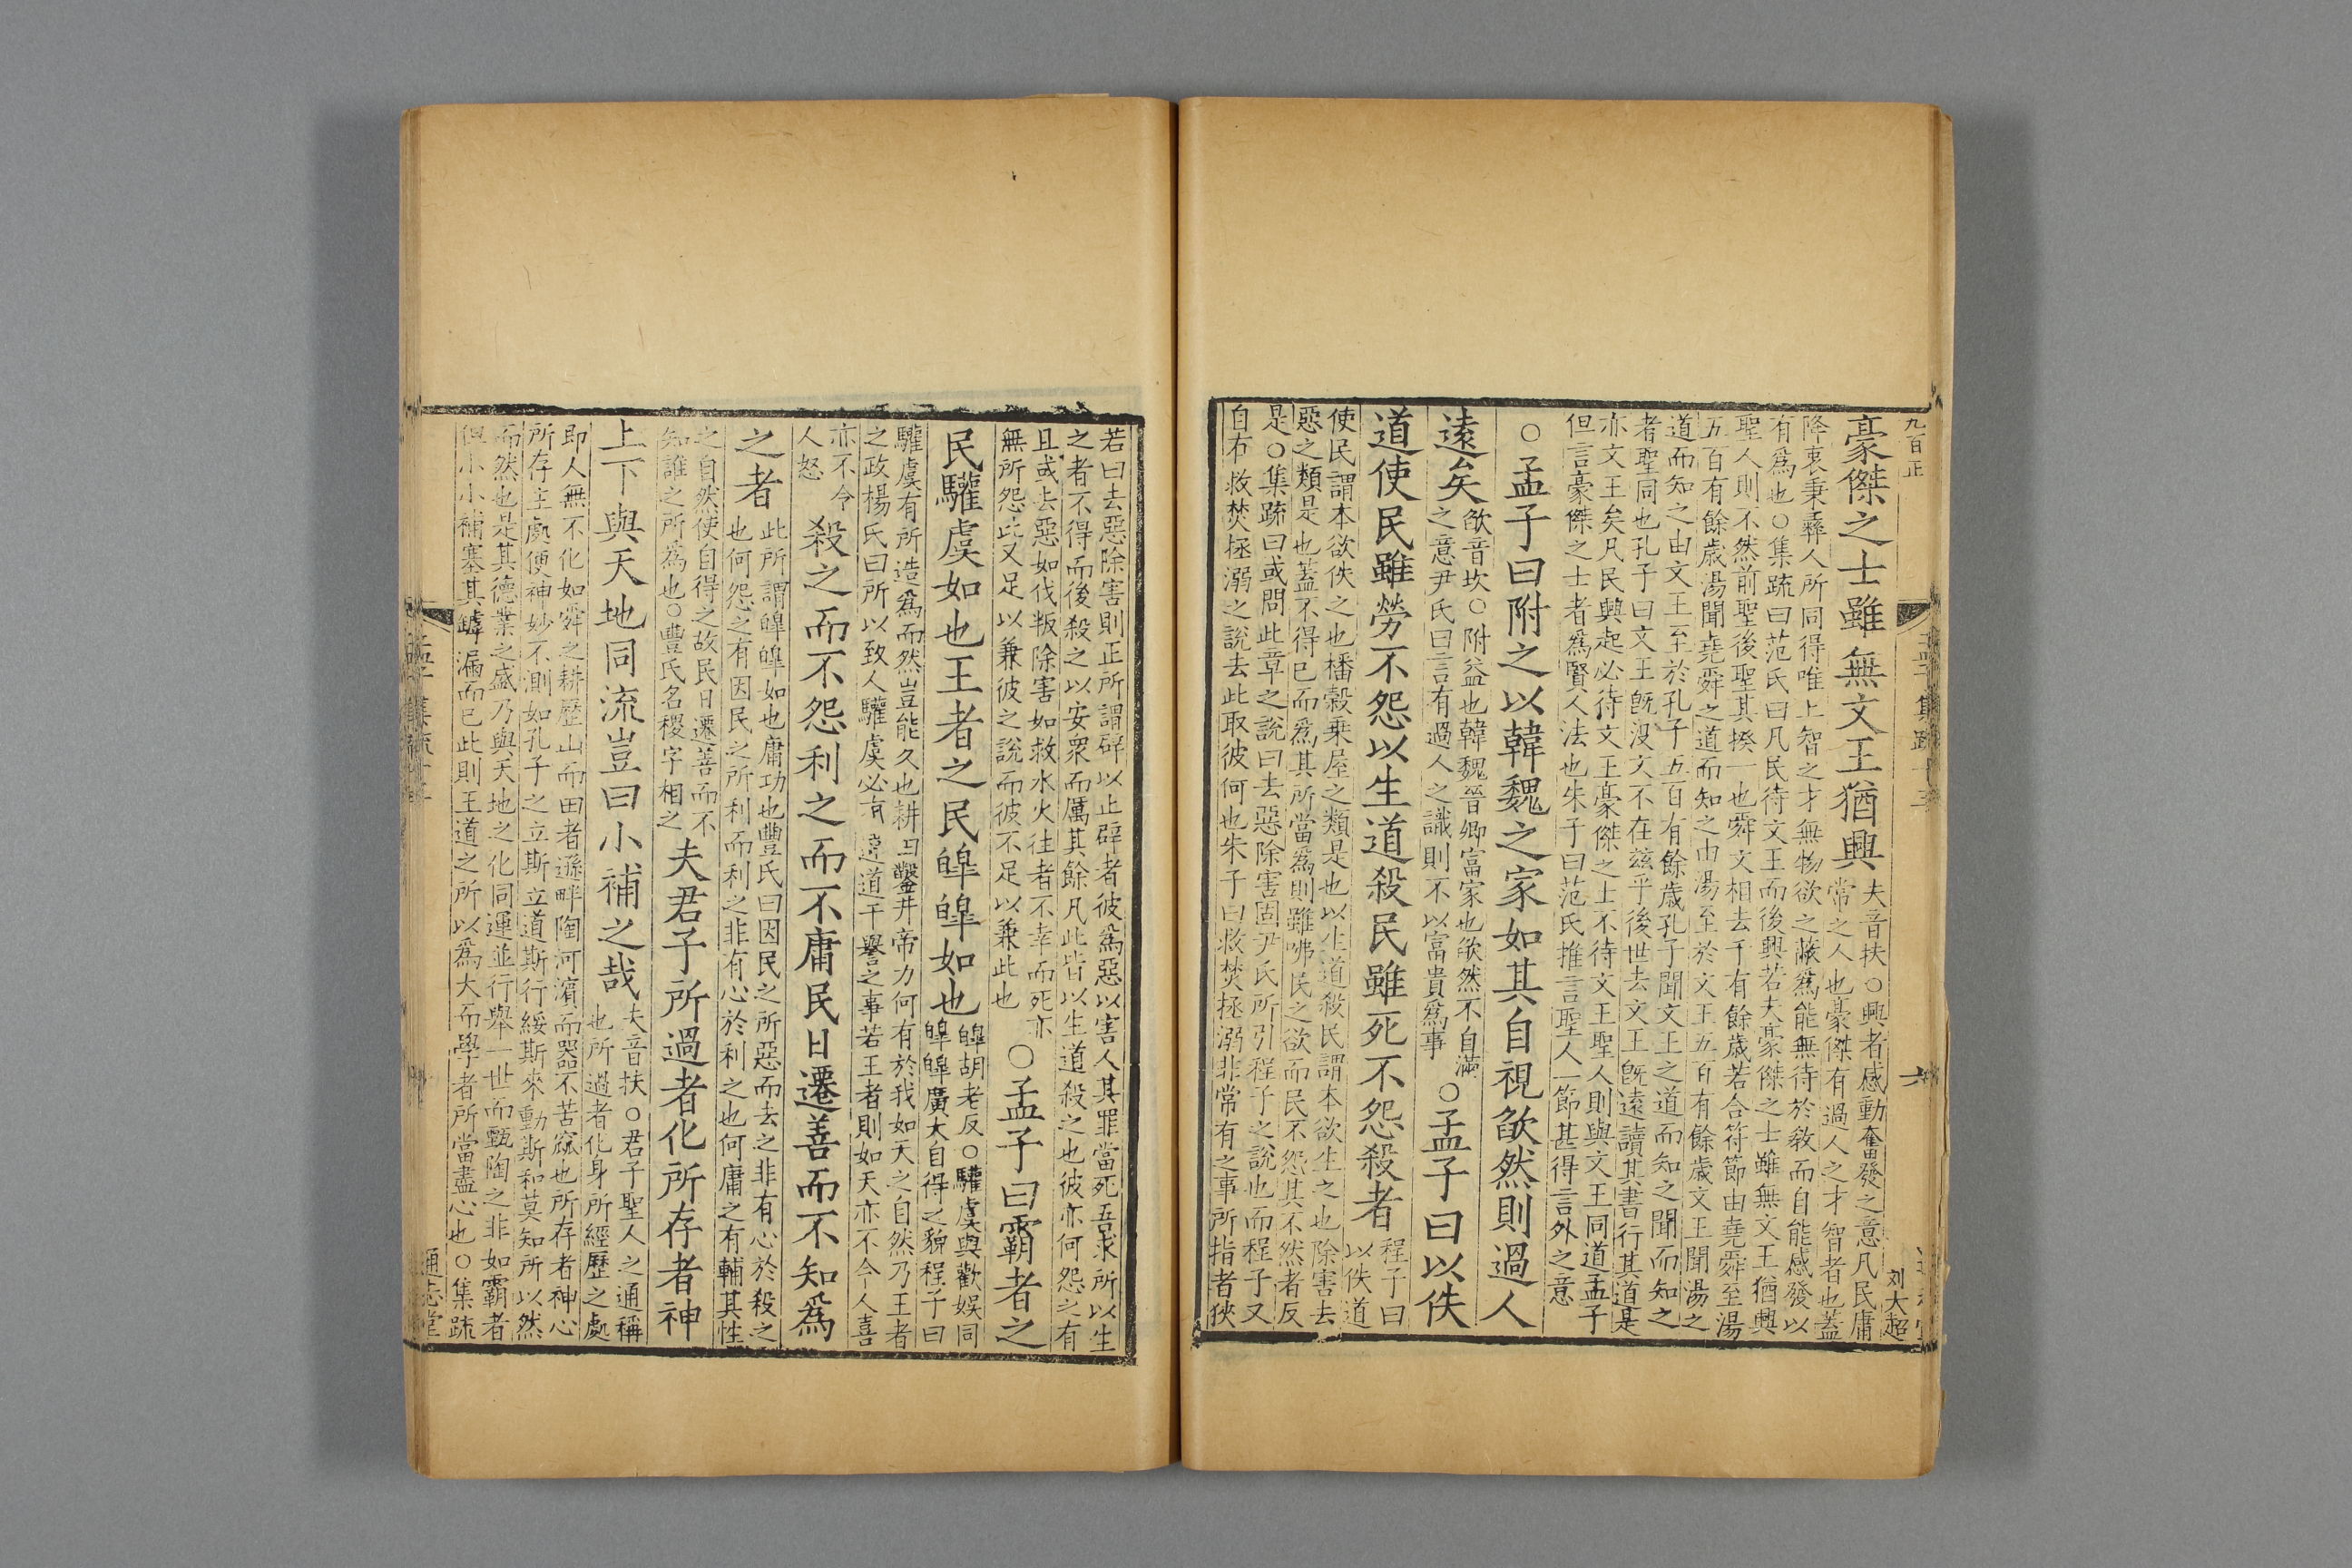 九百正
孟子集疏十三
六
刘大超
豪傑之士雖無文王猶興
夫音扶○興者感動奮發之意凡民庸
常之人也豪傑有過人之才智者也蓋
降衷秉彞人所同得唯上智之才無物欲之蔽爲能無待於敎而自能感發以
有爲也○集疏曰范氏曰凡民待文王而後興若夫豪傑之士雖無文王猶興
聖人則不然前聖後聖其揆一也舜文相去千有餘歲若合符節由堯舜至湯
五百有餘歲湯聞堯舜之道而知之由湯至於文王五百有餘歲文王聞湯之
道而知之由文王至於孔子五百有餘歲孔子聞文王之道而知之聞而知之
者聖同也孔子曰文王旣没文不在兹乎後世去文王旣遠讀其書行其道是
亦文王矣凡民興起必待文王豪傑之士不待文王聖人則與文王同道孟子
但言豪傑之士者爲賢人法也朱子曰范氏推言聖人一節甚得言外之意
○孟子曰附之以韓魏之家如其自視欿然則過人
遠矣
欿音坎○附益也韓魏晉卿富家也欿然不自滿
之意尹氏曰言有過人之識則不以富貴爲事
○孟子曰以佚
道使民雖勞不怨以生道殺民雖死不怨殺者
程子曰
以佚道
使民謂本欲佚之也播穀乗屋之類是也以生道殺民謂本欲生之也除害去
惡之類是也蓋不得已而爲其所當爲則雖咈民之欲而民不怨其不然者反
是○集疏曰或問此章之說曰去惡除害固尹氏所引程子之說也而程子又
自有救焚拯溺之說去此取彼何也朱子曰救焚拯溺非常有之事所指者狹
若曰去惡除害則正所謂辟以止辟者彼爲惡以害人其罪當死吾求所以生
之者不得而後殺之以安衆而厲其餘凡此皆以生道殺之也彼亦何怨之有
且或去惡如伐叛除害如救水火往者不幸而死亦
無所怨此又足以兼彼之說而彼不足以兼此也
○孟子曰霸者之
民驩虞如也王者之民皥皥如也
皥胡老反○驩虞與歡娛同
皥皥廣大自得之貌程子曰
驩虞有所造爲而然豈能久也耕田鑿井帝力何有於我如天之自然乃王者
之政楊氏曰所以致人驩虞必有違道干譽之事若王者則如天亦不令人喜
亦不令
人怒
殺之而不怨利之而不庸民日遷善而不知爲
之者
此所謂皥皥如也庸功也豐氏曰因民之所惡而去之非有心於殺之
也何怨之有因民之所利而利之非有心於利之也何庸之有輔其性
之自然使自得之故民日遷善而不
知誰之所爲也○豐氏名稷字相之
夫君子所過者化所存者神
上下與天地同流豈曰小補之哉
夫音扶○君子聖人之通稱
也所過者化身所經歷之處
即人無不化如舜之耕歷山而田者遜畔陶河濱而器不苦窳也所存者神心
所存主處便神妙不測如孔子之立斯立道斯行綏斯來動斯和莫知所以然
而然也是其德業之盛乃與天地之化同運並行舉一世而甄陶之非如霸者
但小小補塞其罅漏而已此則王道之所以爲大而學者所當盡心也○集疏
孟子集疏十三
通志堂